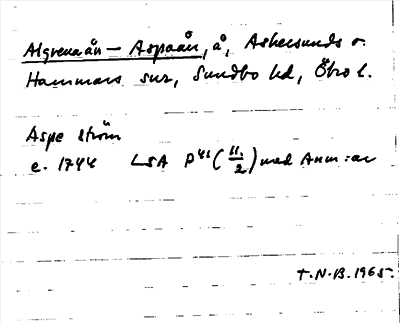 Algrenaån – Aspaån, å, Askersunds o.
Hammars snr, Sundbo hd, Öbro l.
Aspe ström
e. 1744 LSA P41 (11/2) med Anm:ar
T.N.B. 1965.